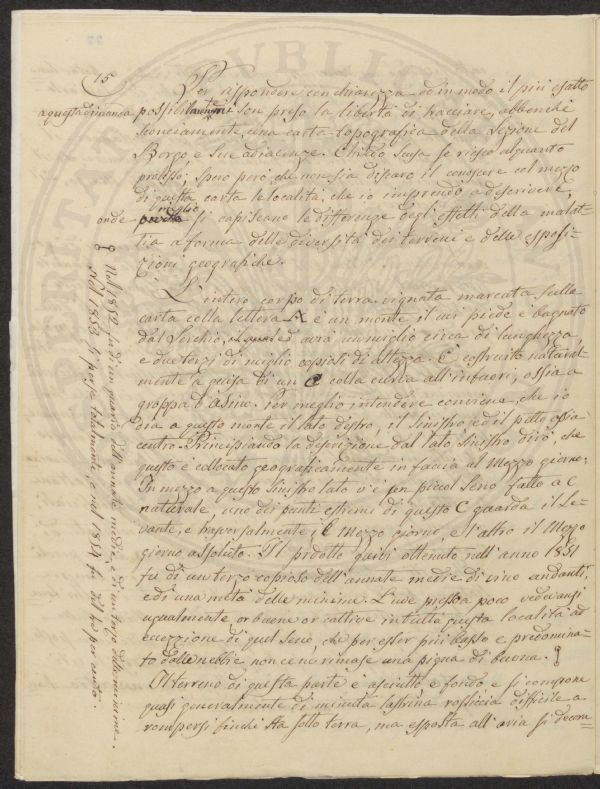 15
Per rispondere con chiarezza ed in modo il più esatto
a questa dimanda possibilmente son preso la libertà di tracciare, abbenchè
sconciamente, una carta topografica della Sezione del
Borgo, e sue adiacenze. Chiedo scusa se riesco alquanto
prolisso; spero però che non sia discaro il conoscere col mezzo
di questa carta le località, che io imprendo a descrivere,
onde meglio si capiscano le differenze degli effetti della malat-
tia a forma delle diversità dei terreni e delle esposi-
zioni geografiche.
L'intero corpo di terra vignata marcata sulla
carta colla lettera A è un monte il cui piede è bagnato
dal Serchio, ed avrà un miglio circa di lunghezza,
e due terzi di miglio copiosi di altezza. È costruito natural-
mente a guisa di un C colla curva all'infuori, ossia a
groppa d'asino. Per meglio intendere conviene, che io
dia a questo monte il lato destro, il sinistro, ed il petto ossia
centro. Principiando la descrizione dal lato sinistro dirò, che
questo è collocato geograficamente in faccia al Mezzo giorno.
In mezzo a questo sinistro lato v'è un piccol seno fatto a C
naturale, uno dei punti estremi di questo C guarda il Le-
vante, e traversalmente il Mezzo giorno, e l'altro il Mezzo
giorno assoluto. Il prodotto quivi ottenuto nell'anno 1851
fu di un terzo copioso dell'annate medie di vino andanti,
e di una metà delle minime. L'uve pressoa poco vedevansi
ugualmente or buone or cattive in tutta questa località ad
eccezzione di quel seno, che per esser più basso e predomina-
to dalle nebbie non ce ne rimase una pigna di buona.
Il terreno di questa parte è asciutto e fondo e si compone
quasi generalmente di minuta lastrina rossiccia difficile a
rompersi finchè sta sotto terra, ma esposta all'aria si decom-
Nell 1852 fu di un quarto dell'annate medie, e di un terzo delle minime.
Nel 1853 si perse totalmente, e nel 1854 fu del per cento.